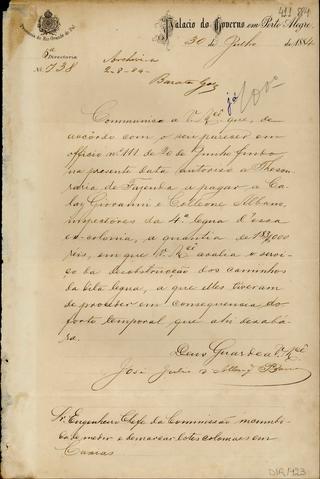 Palacio do Governo em Porto Alegre,
Provincia do Rio Grande do Sul
30 de Julho de 1884
Directoria
N. 738
Archive-se
2-8-84
já
Communico a V. Mcê que, de
accôrdo com o seu parecer em
officio nº 111 de 20 de Junho findo
na presente data autoriso a Thesou-
raria de Fazenda a pagar a Ca-
Giovanni e Colleone Albano,
inspectores da 4ª legua d'essa
ex-colonia, a quantia de
reis, em que V. Mcê avalia o servi-
ço da desobstrucção dos caminhos
da dita legua, a que elles tiveram
de proceder em consequencia do
forte temporal que ahi desabá-
ra.
Deus Guarde a V. Mcê
José Julio de
Sr. Engenheiro Chefe da Commissão incumbi-
da de medir e demarcar lotes coloniaes em
Caxias